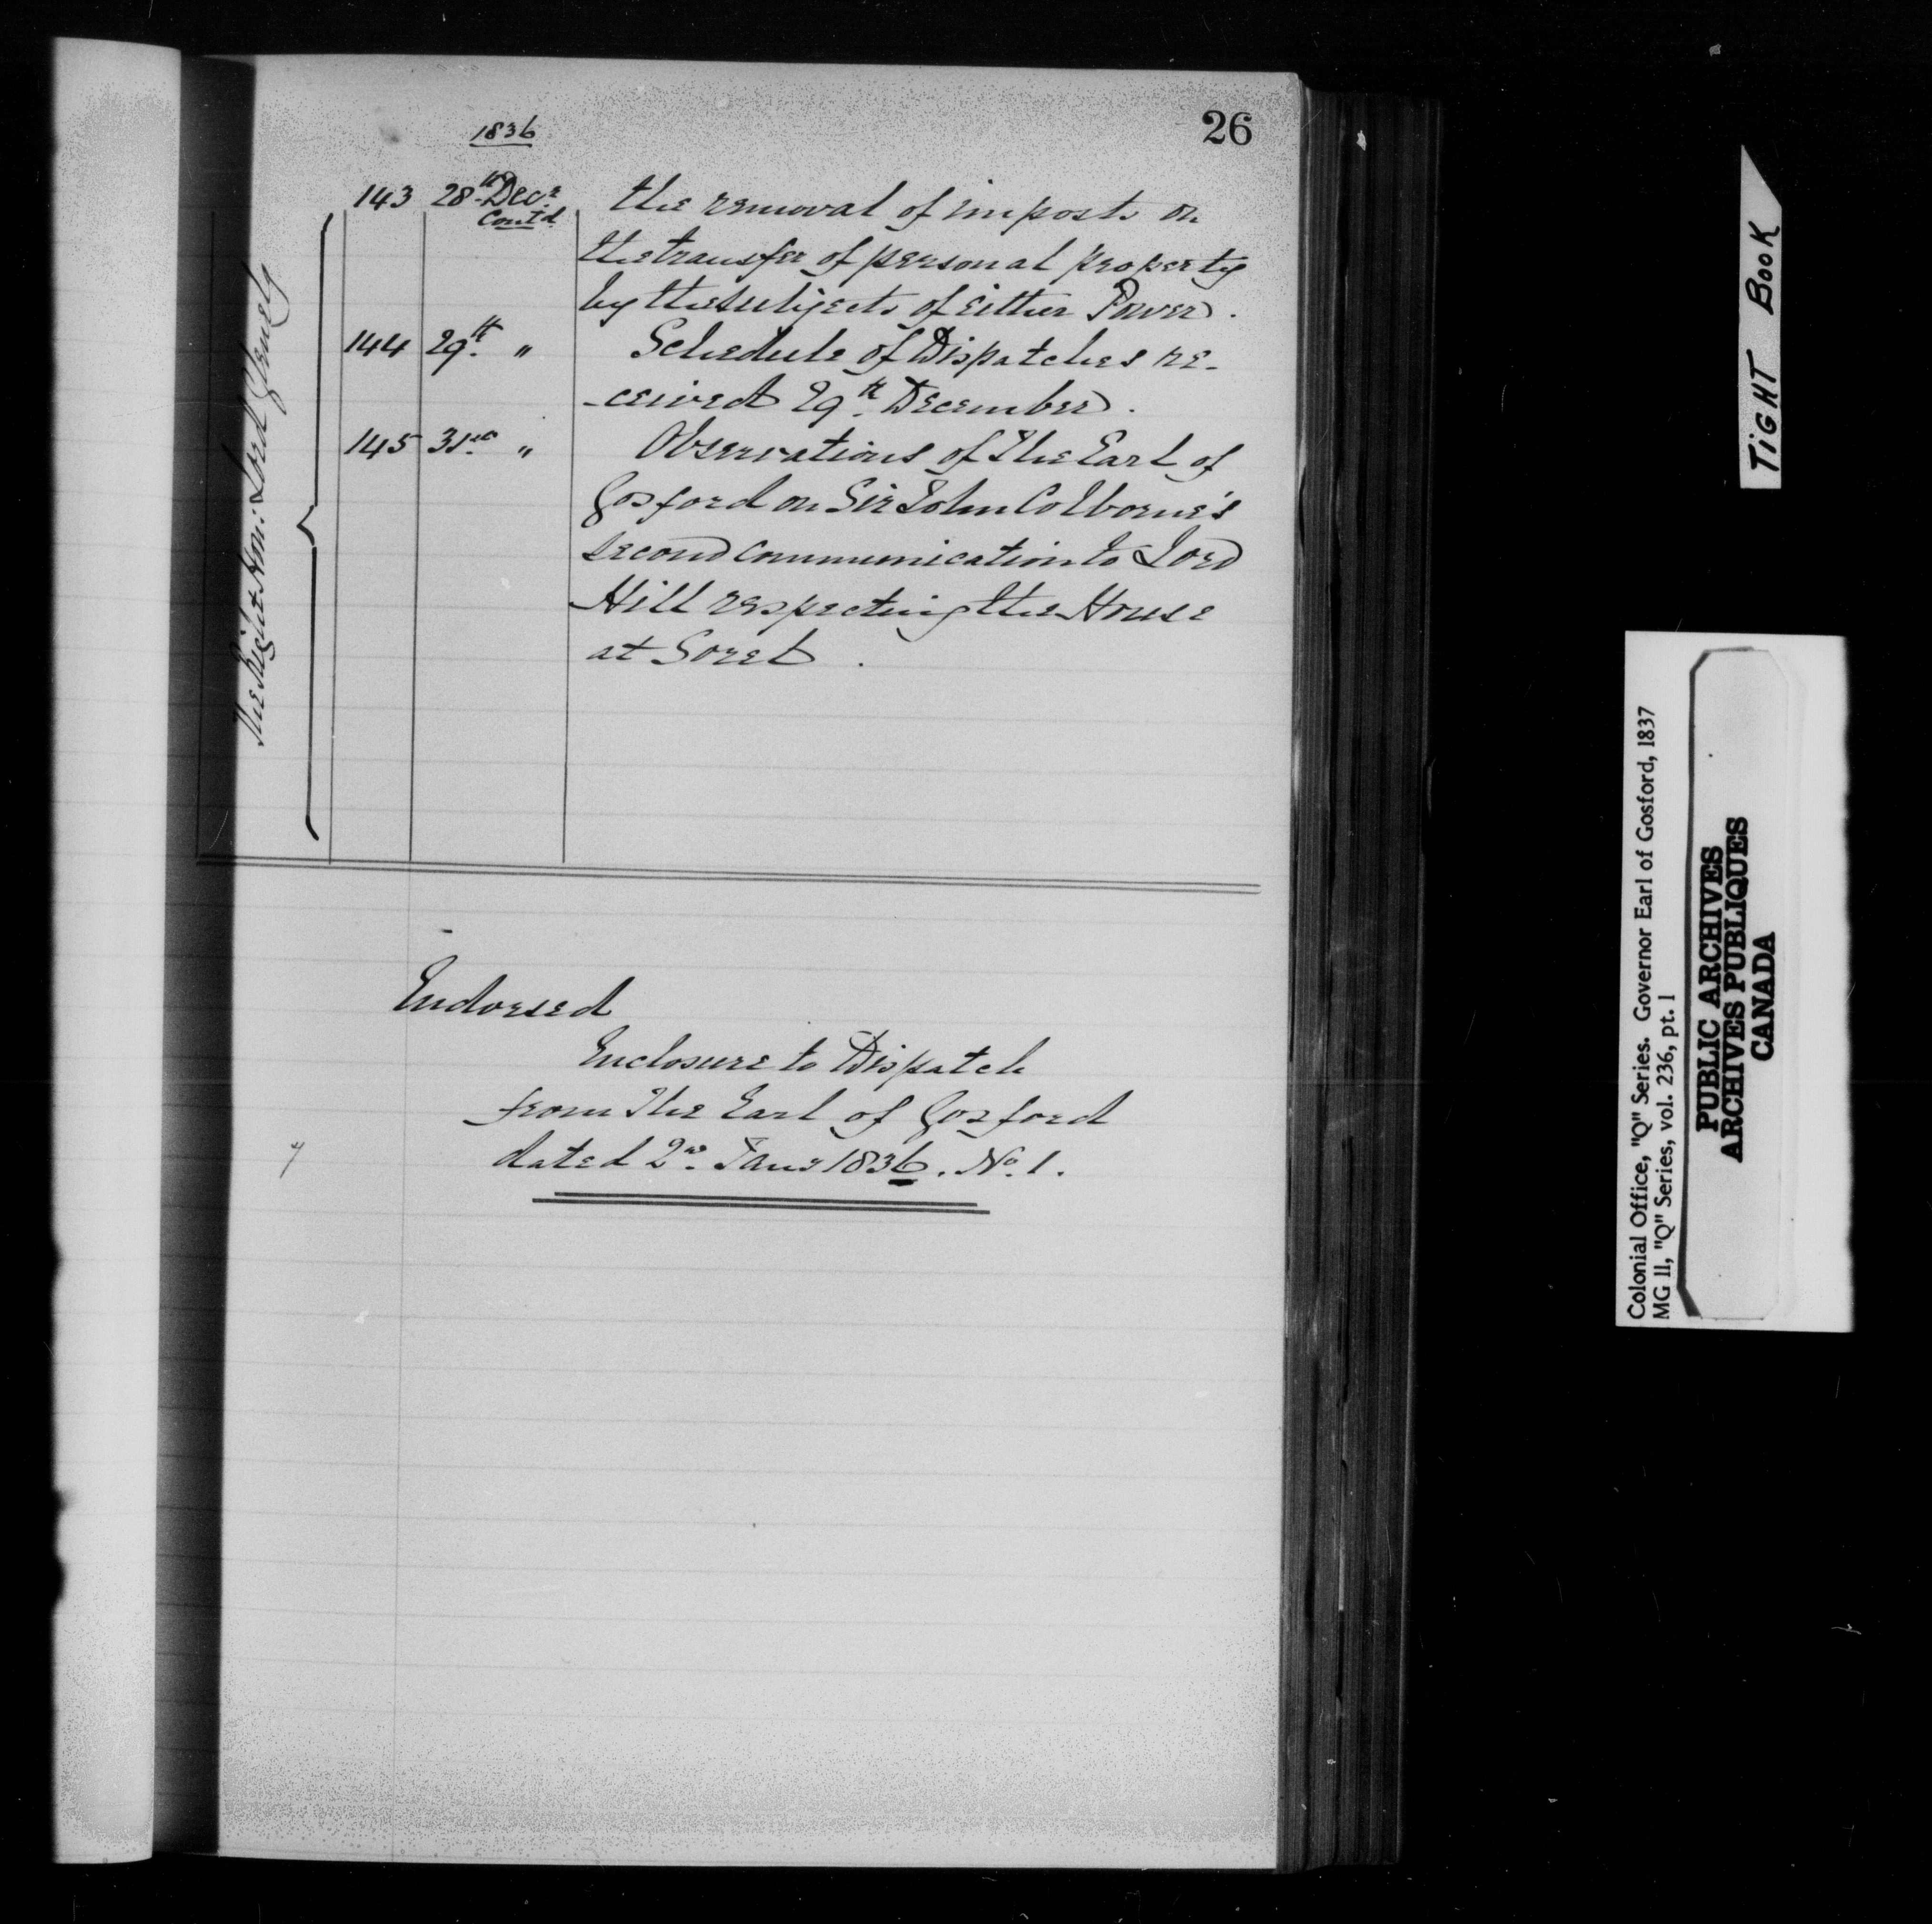 26
1836
The Right Honl. Lord Glenelg
143 28th Decr. the removal of imposts on
Cont'd.
the transfer of personal property
by the subjects of either Power.
144 29th. " Schedule of Dispatches re-
-ceived 29th. December.
145 31st. " Observations of The Earl of
Gosford on Sir John Colborne's
second communication to Lord
Hill respecting the House
at Sorel.
Endorsed
Enclosure to Dispatch
from The Earl of Gosford
dated 2nd. Jany 1836. No. 1.
TIGHT BOOK
Colonial Office, "Q" Series. Governor Earl of Gosford, 1837
MG 11, "Q" Series, vol. 236, pt. 1
PUBLIC ARCHIVES
ARCHIVES PUBLIQUES
CANADA